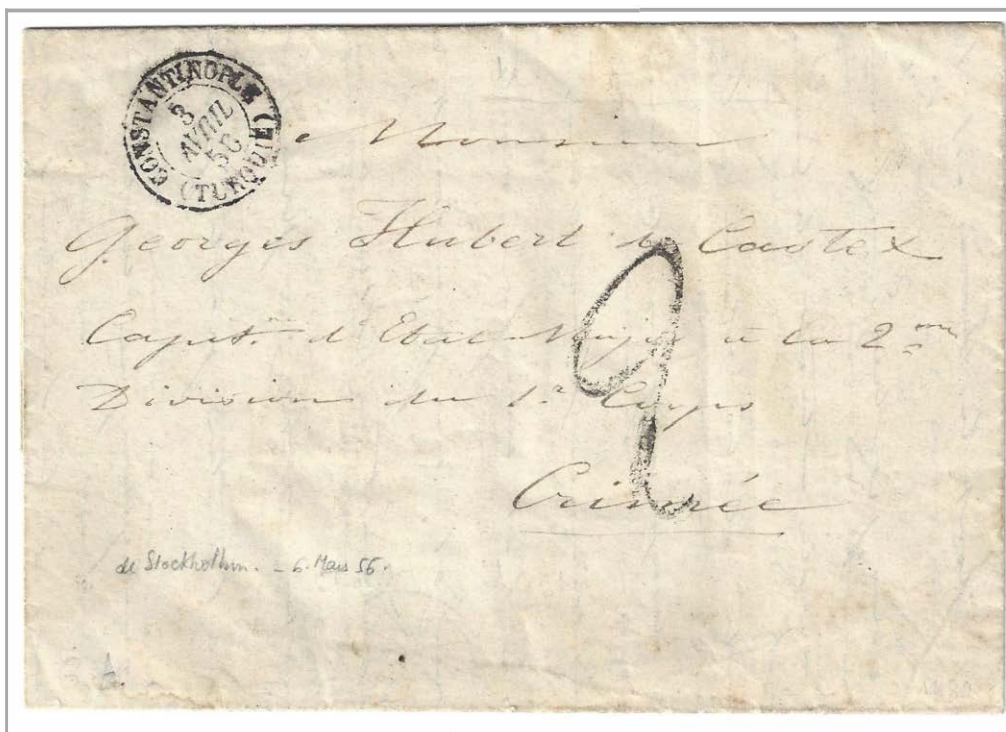 CONSTANTINOPLE (TURQUIE)
3
AVRIL
56
Monsieur
Georges Hubert de Castex
Capit.ne d'Etat Major à la 2me
Division du 1r Corps
Crimée
2
de Stockholm. - 6. Mars 56.